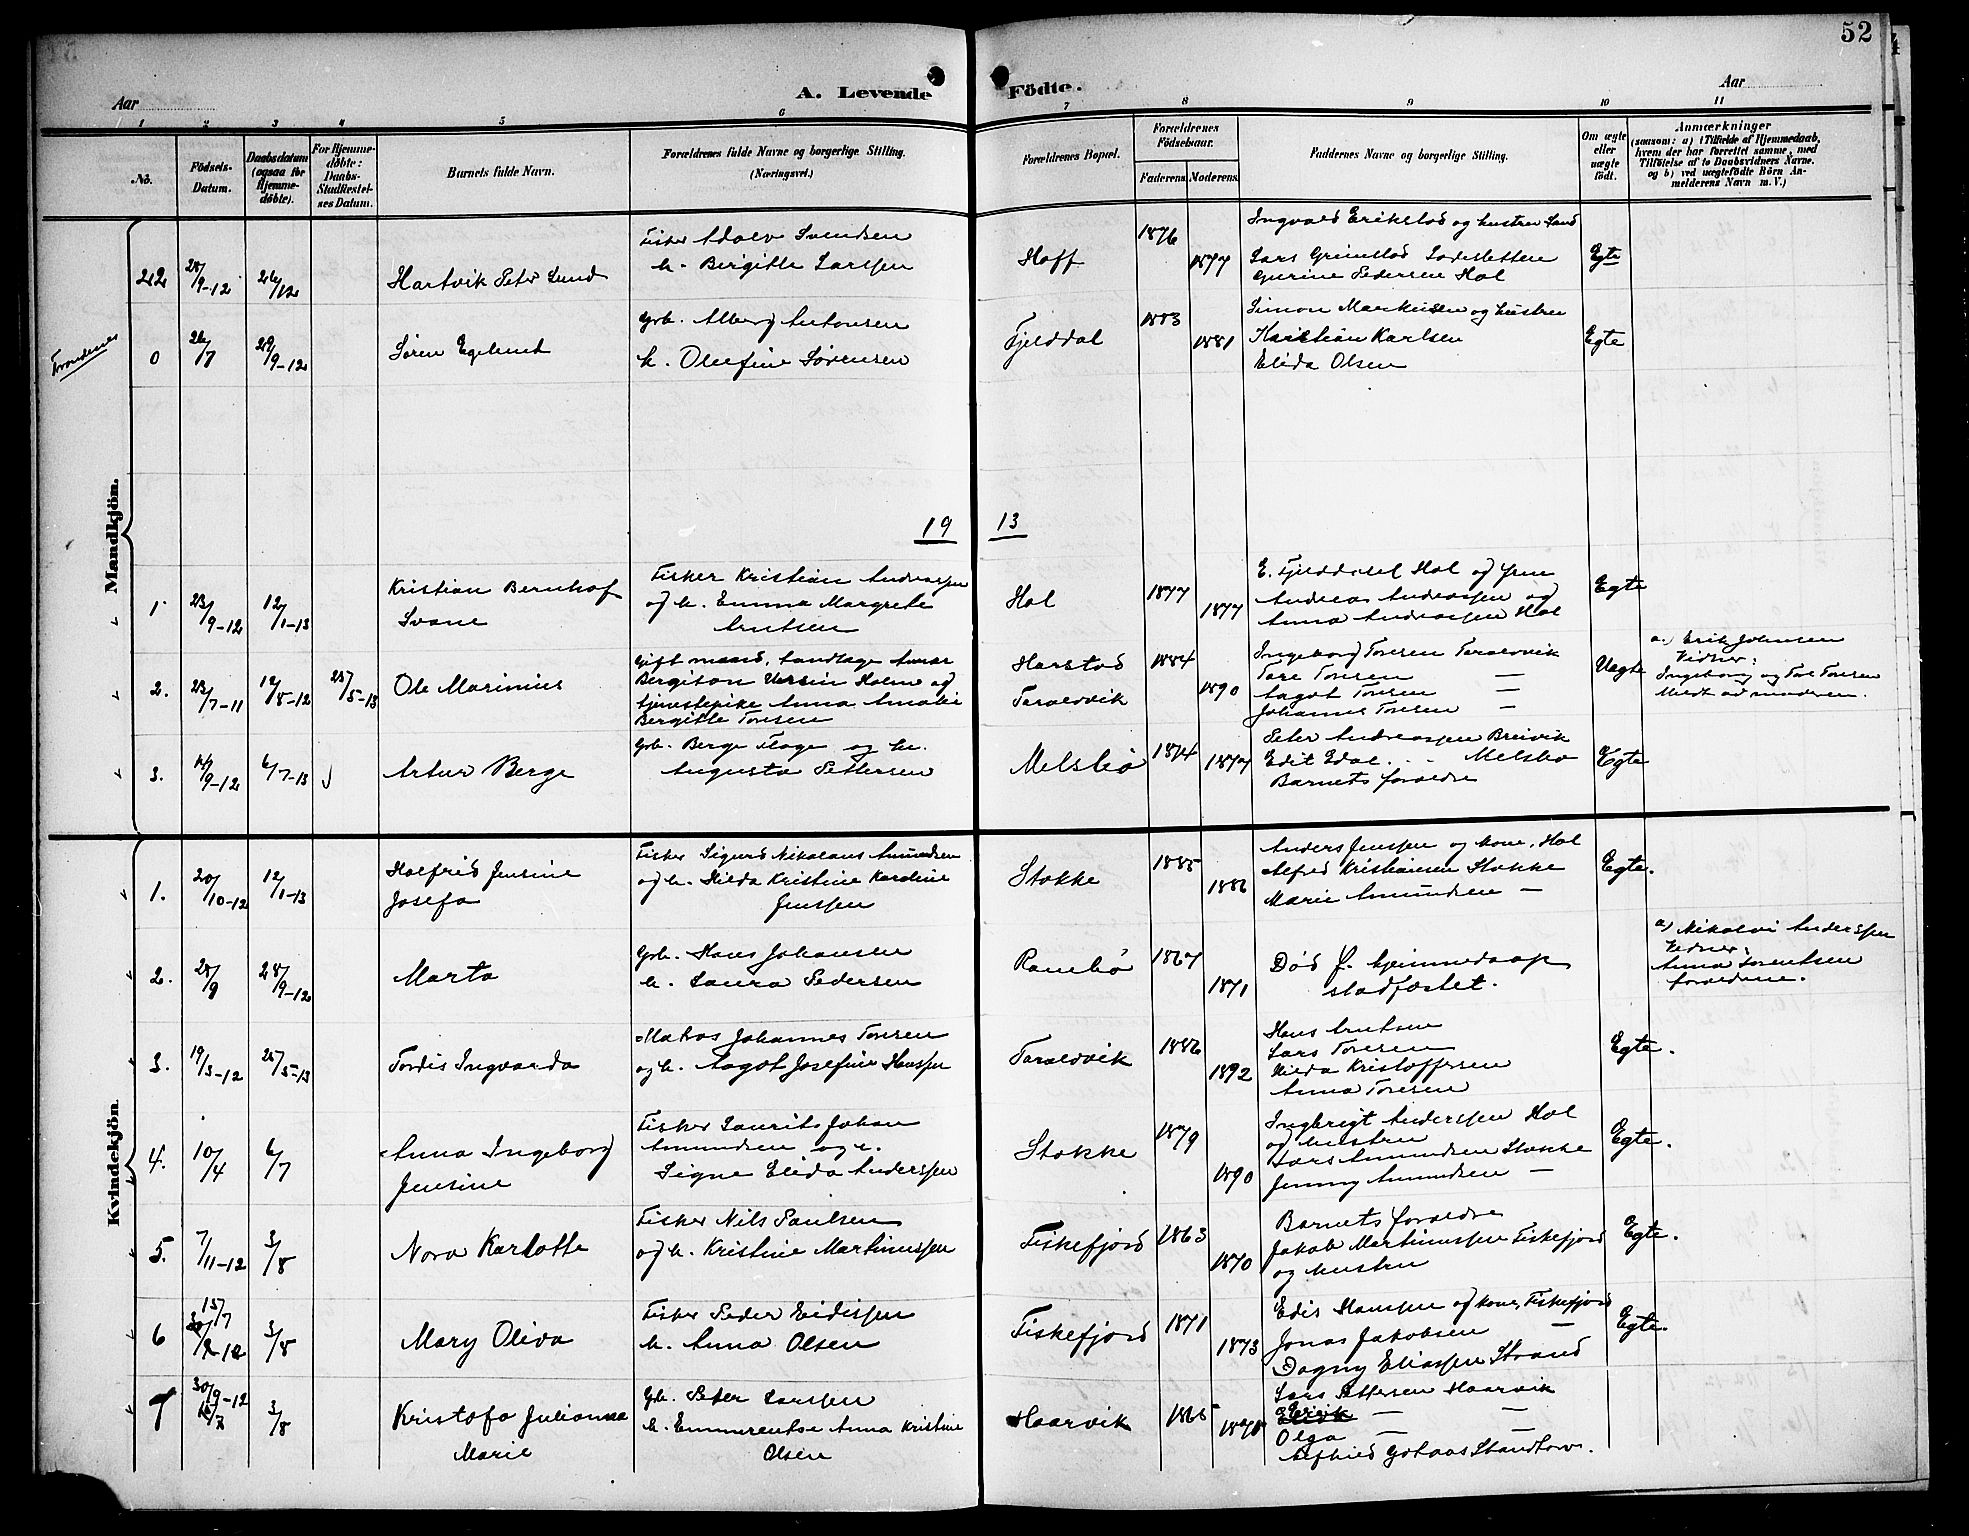 52
Aar
A. Levende Födte.
Aar
1 2 3 4 5 6 7 8 9 10 11
No.
Födsels-
Datum.
Daabsdatum
(ogsaa for
Hjemme-
döbte).
For Hjemme-
döbte:
Daabs-
Stadfæstel-
ses Datum.
Barnets fulde Navn.
Forældrenes fulde Navne og borgerlige Stilling.
(Næringsvei.)
Forældrenes Bopæl.
Forældrenes
Födselsaar.
Faderens. Moderens.
Faddernes Navne og borgerlige Stilling.
Om ægte
eller
uægte
födt.
Anmærkninger
(saasom: a) i Tilfælde af Hjemmedaab,
hvem der har forrettet samme, med
Tilföielse af to Daabsvidners Navne,
og b) ved uægtefödte Börn An-
melderens Navn m. V.)
Mandkjön.
22 28/9-12 26/12 Hartvik Peter Lund
Fisker Adolv Svendsen
h. Bergitte Larssen
Hoff 1876 1877
Ingvald Erikstad og hustru Sand
Lars Grimstad Ladesletten
Gurine Pedersen Hol
Egte
Trondenes
0 26/7 29/9-12 Søren Egelund
Grb. Alberg Antonsen
h. Olufine Sørensen
Fjelddal 1883 1881
Simon Markussen og hustru
Kristian Karlsen
Elida Olsen
Egte
19 13
1 23/9-12 12/1-13 Kristian Bernhof
Svane
Fisker Kristian Andreassen
og h. Emma Margrete
Arntsen
Hol 1877 1877
E. Fjelddahl Hol og frue
Andreas Andreassen og
Anna Andreassen Hol
Egte
2. 23/7-11 12/8-12 25/5-13 Ole Marinius
Gift mand,
Bergiton Holme og
tjenestepike Anna Amalie
Bergitte Toresen
Harstad
Taraldvik
1884 1890
Ingeborg Toresen Taraldvik
Tore Toresen —
Aagot Toresen —
Johannes Toresen —
Uegte
a.) Erik Johnsen
Vidner:
Ingeborg og Tore Toresen
Meldt av moderen.
3. 14/9-12 6/7-13 Artur Berge
Grb. Berge Flage og h.
Augusta Pettersen
Melsbø 1874 1877
Peter Andreassen Breivik
Edit Edal. . . Melsbø
Barnets foreldre
Egte
Kvindekjön
1. 20/10-12 12/1-13 Halfrid Jensine
Josefa
Fisker Sigurd Nikolaus Amundsen
og h. Hilda Kristine Karoline
Jenssen
Stokke 1885 1886
Anders Jenssen og kone, Hol
Alfred Kristiansen Stokke
Marie Amundsen —
Egte.
2. 28/8 28/9-12 Marta
Grb. Hans Johansen
h. Laura Pedersen
Rambø 1867 1871
Død f. hjemmedaap
stadfæstet.
a) Nikolai Anderssen
Vidner:
Anna Lorentsen
foreldrene.
3. 19/3-12 25/5-13 Tordis Ingvarda
Matros Johannes Toresen
og h. Aagot Josefine Hanssen
Taraldvik 1886 1892
Hans Arntsen
Lars Toresen
Hilda Kristoffersen
Anna Toresen
Egte.
4. 10/4 6/7 Anna Ingeborg
Jensine
Fisker Laurits Johan
Amundsen og h.
Signe Elida Anderssen
Stokke 1879 1890
Ingbrigt Anderssen Hol
og hustru
Lars Amundsen Stokke
Jenny Amundsen —
Egte.
5. 7/11-12 3/8 Nora Karlotte
Fisker Nils Paulsen
og h. Kristine Martinussen
Fiskefjord 1863 1870
Barnets foreldre
Jakob Martinussen Fiskefjord
og hustru
Egte.
6 15/7 3/8 Mary Oliva
Fisker Peder Eidissen
h. Anna Olsen
Fiskefjord 1871 1873
Edis Hanssen og kone, Fiskefjord
Jonas Jakobsen —
Dagny Eliassen Strand
Egte.
7 30/9-12 3/8 Kristofa Julianna
Marie
Grb. Peter Larssen
h. Emmerentse Anna Kristine
Olsen
Haarvik 1865
Lars Pettersen Haarvik
Erik — —
Olga —